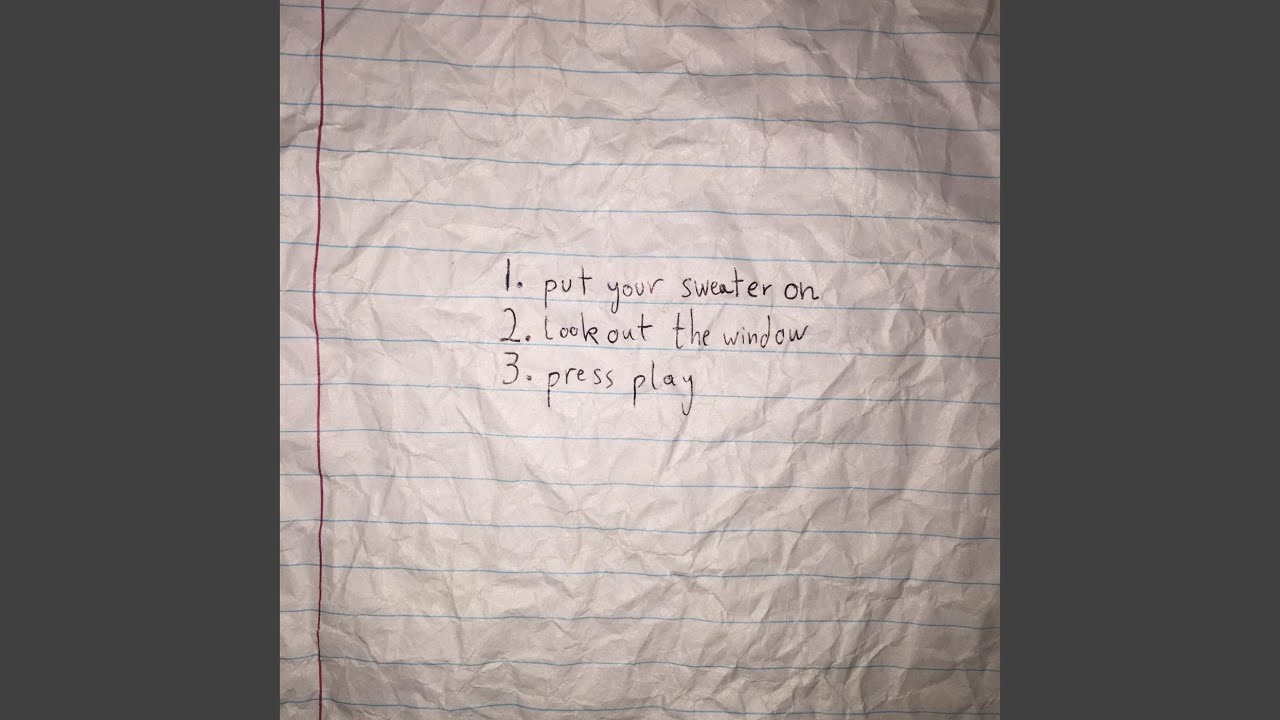 1. put your sweater on
2. look out the window
3. press play